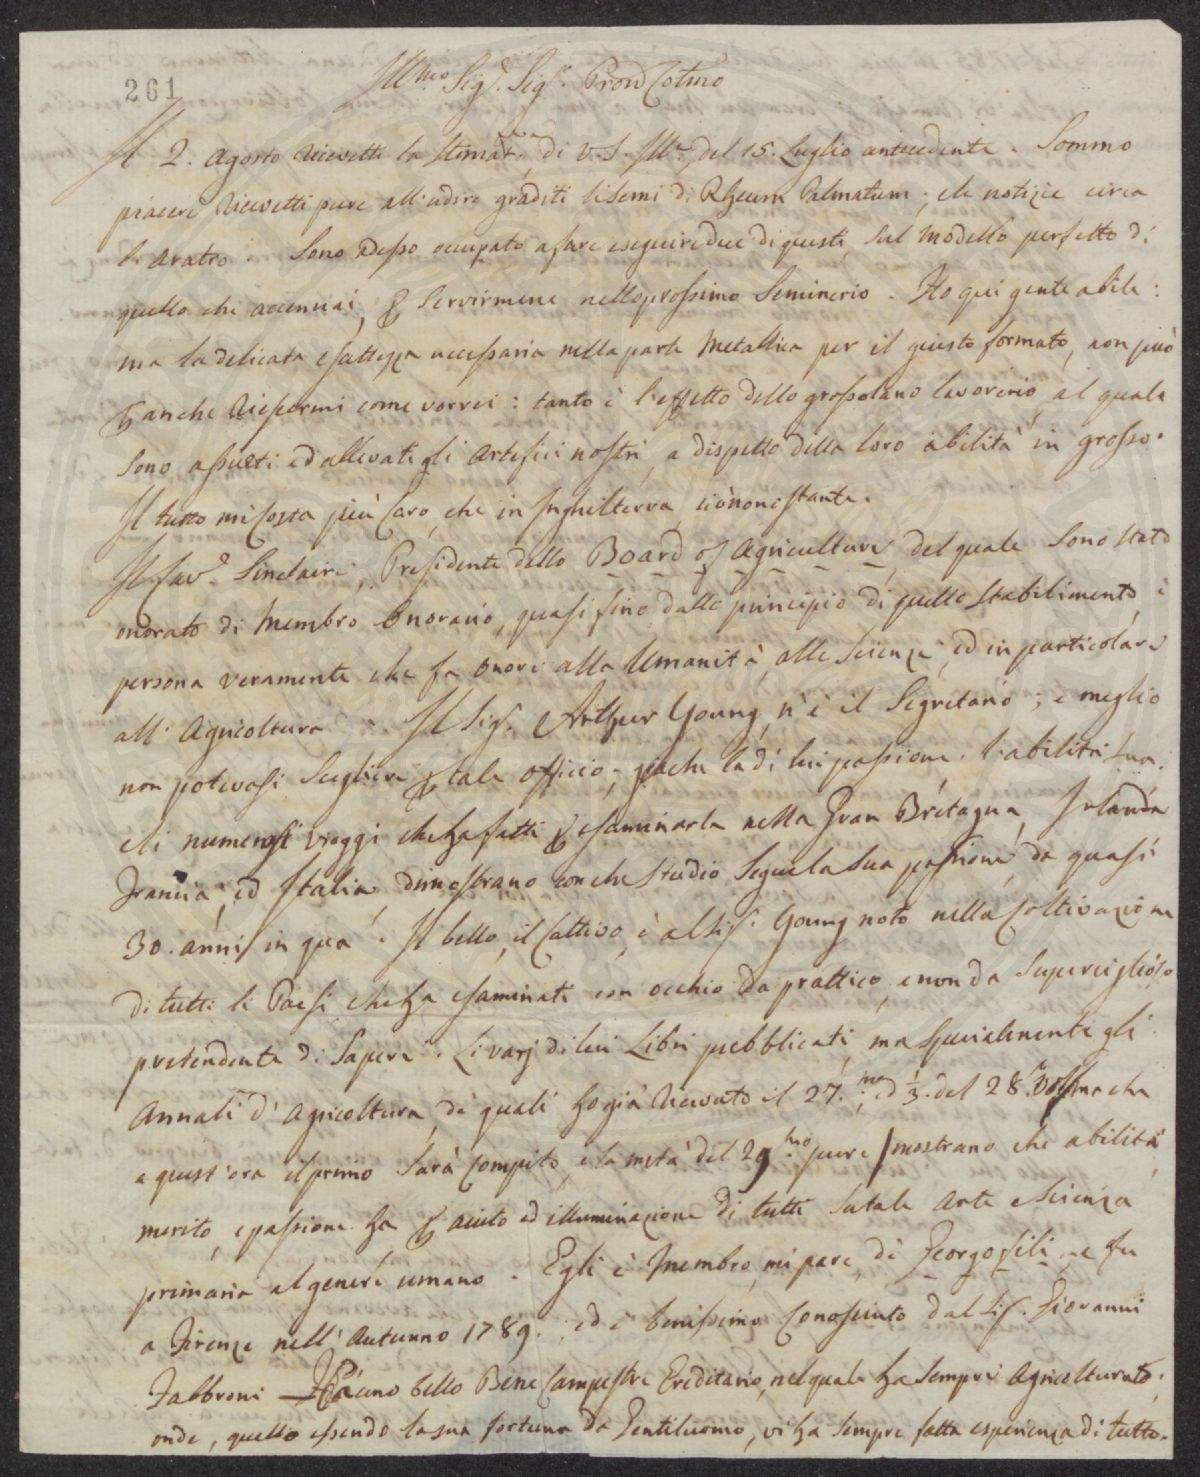 261
Ill.mo Sig.r Sig.r Pron Colmo
Il 2. Agosto ricevetti la stimat.ma di V.S. Ill.ma del 15. Luglio antecedente. Sommo
piacere ricevetti pure all'udire graditi li semi di Rheum Palmatum; e le notizie circa
l'Aratro. Sono adesso occupato a fare eseguire due di questi, sul modello perfetto di
quello che accennai, p servirmene nello prossimo Seminerio. Ho qui gente abile:
ma la delicata esattezza necessaria nella parte Metallica per il giusto formato, non può
p anche riescermi come vorrei: tanto è l'effetto dello grossolano lavorerio, al quale
sono assueti ed allevati gli Artefici nostri, a dispetto della loro abilità in grosso.
Il tutto mi costa più caro, che in Inghilterra, ciònonistante.
Il Cav.e Sinclaire, Presidente dello Board of Agriculture, del quale sono stato
onorato di Membro Onorario, quasi fino dallo principio di quello stabilimento, è
persona veramente che fa onore alla Umanità, alle scienze, ed in particolare
all'Agricoltura. Il Sig.r Arthur Young, n'è il Segretario; e meglio
non potevasi scegliere p tale officio; poiche la di lui passione, l'abilità sua,
e li numerosi viaggi che ha fatti p esaminarla nella Gran Bretagna, Irlanda
Francia, ed Italia, dimostrano con che studio segue la sua passione, da quasi
30. anni in qua. Il bello, il cattivo, è al Sig.r Young noto nella coltivazione
di tutti li Paesi che ha esaminati con occhio da prattico, e non da superciglioso
pretendente di sapere. Li varj di lui Libri pubblicati, ma specialmente gli
Annali d'Agricoltura, de quali ho già ricevuto il 27.mo, ed 1/3 del 28.mo Vol. /ma che
a quest'ora il primo sarà compito, e la metà del 29.mo pure/ mostrano che abilità
merito, e passione ha p aiuto ed illuminazione di tutti su tale Arte e Scienza
primaria al genere umano. Egli è Membro, mi pare, de Georgofili, e fu
a Firenze nell'Autunno 1789.; ed è benissimo conosciuto dal Sig.r Giovanni
Fabbroni. Ha uno bello Bene Campestre Ereditario, nel quale ha sempre Agricolturato;
onde, quello essendo la sua fortuna da Gentiluomo, vi ha sempre fatta esperienza di tutto.